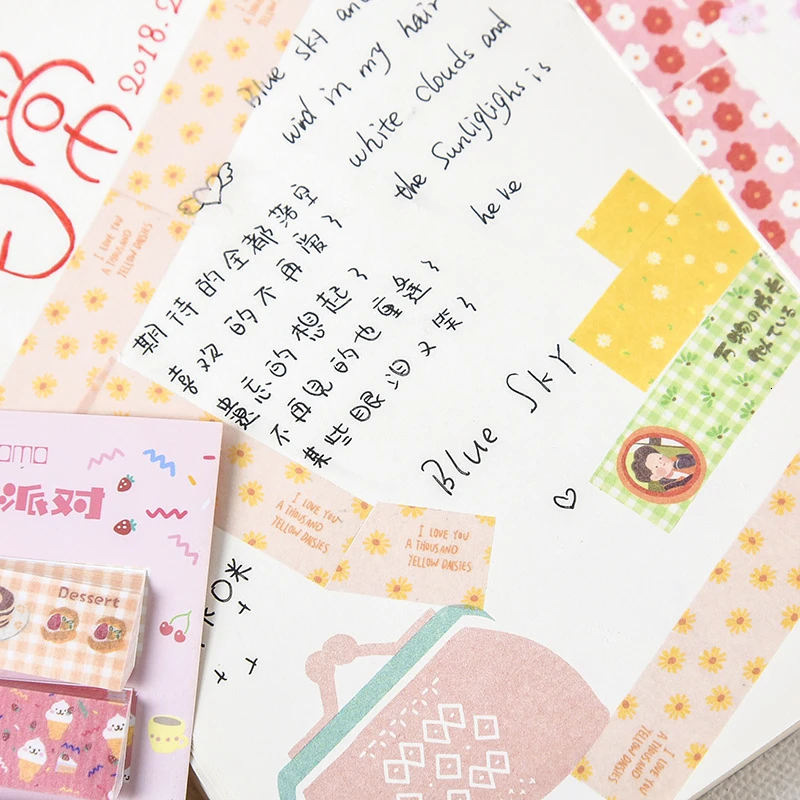 2018.2
Blue sky and
wind in my hair
white clouds and
the Sunliglighs is
heke
期待的全都落空
喜欢的不再爱了
遗忘的想起了
不再见的也重逢了
某些眼泪又哭了
Blue SKY
万物の
似ている
I LOVE YOU
A THOUSAND
YELLOW DAISIES
I LOVE YOU
A THOUSAND
YELLOW DAISIES
I LOVE YOU
A THOUSAND
YELLOW DAISIES
I LOVE YOU
A THOUSAND
YELLOW DAISIES
派对
Dessert